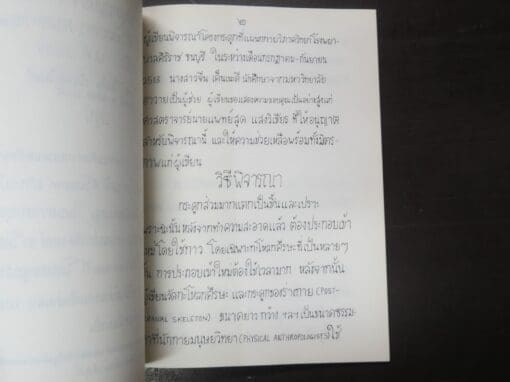 ๒
ผู้เขียนพิจารณาโครงกระดูกที่แผนกกายวิภาควิทยาโรงพยา-
บาลศิริราช ธนบุรี ในระหว่างเดือนกรกฎาคม-กันยายน
2513 นางสาวจีน เค็นเนดี นักศึกษาจากมหาวิทยาลัย
ฮาวายเป็นผู้ช่วย ผู้เขียนขอแสดงความขอบคุณเป็นอย่างสูงแก่
ศาสตราจารย์นายแพทย์สุด แสงวิเชียร ที่ให้อนุญาต
สำหรับพิจารณานี้ และให้ความช่วยเหลือพร้อมทั้งมิตร-
ภาพแก่ผู้เขียน
วิธีพิจารณา
กระดูกส่วนมากแตกเป็นชิ้นและเปราะ
เพราะฉะนั้นหลังจากทำความสะอาดแล้ว ต้องประกอบเข้า
ใหม่โดยใช้กาว โดยเฉพาะกะโหลกศีรษะที่เป็นหลายๆ
ชิ้น การประกอบเข้าใหม่ต้องใช้เวลามาก หลังจากนั้น
ผู้เขียนวัดกะโหลกศีรษะ และกระดูกของร่างกาย (POST-
CRANIAL SKELETON) ขนาดยาว กว้าง ฯลฯ เป็นขนาดธรรม-
ดาที่นักกายมนุษยวิทยา (PHYSICAL ANTHROPOLOGISTS) ใช้